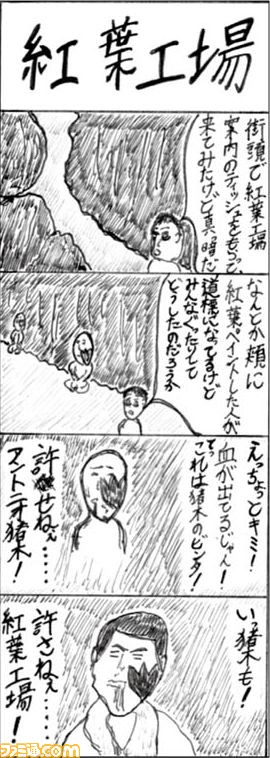 紅葉工場
街頭で紅葉工場
案内のティッシュをもらって、
来てみたけど真暗だ
なんとか頬に
紅葉ペイントした人が
道標になってるけど
みんなぐったりして
どうしたのだろうか
えっちょっとキミ!
血が出てるじゃん!
これは猪木のビンタ!
許せねぇ……
アントニオ猪木!
いっ猪木も!
許さねぇ……
紅葉工場!
ファミ通.com